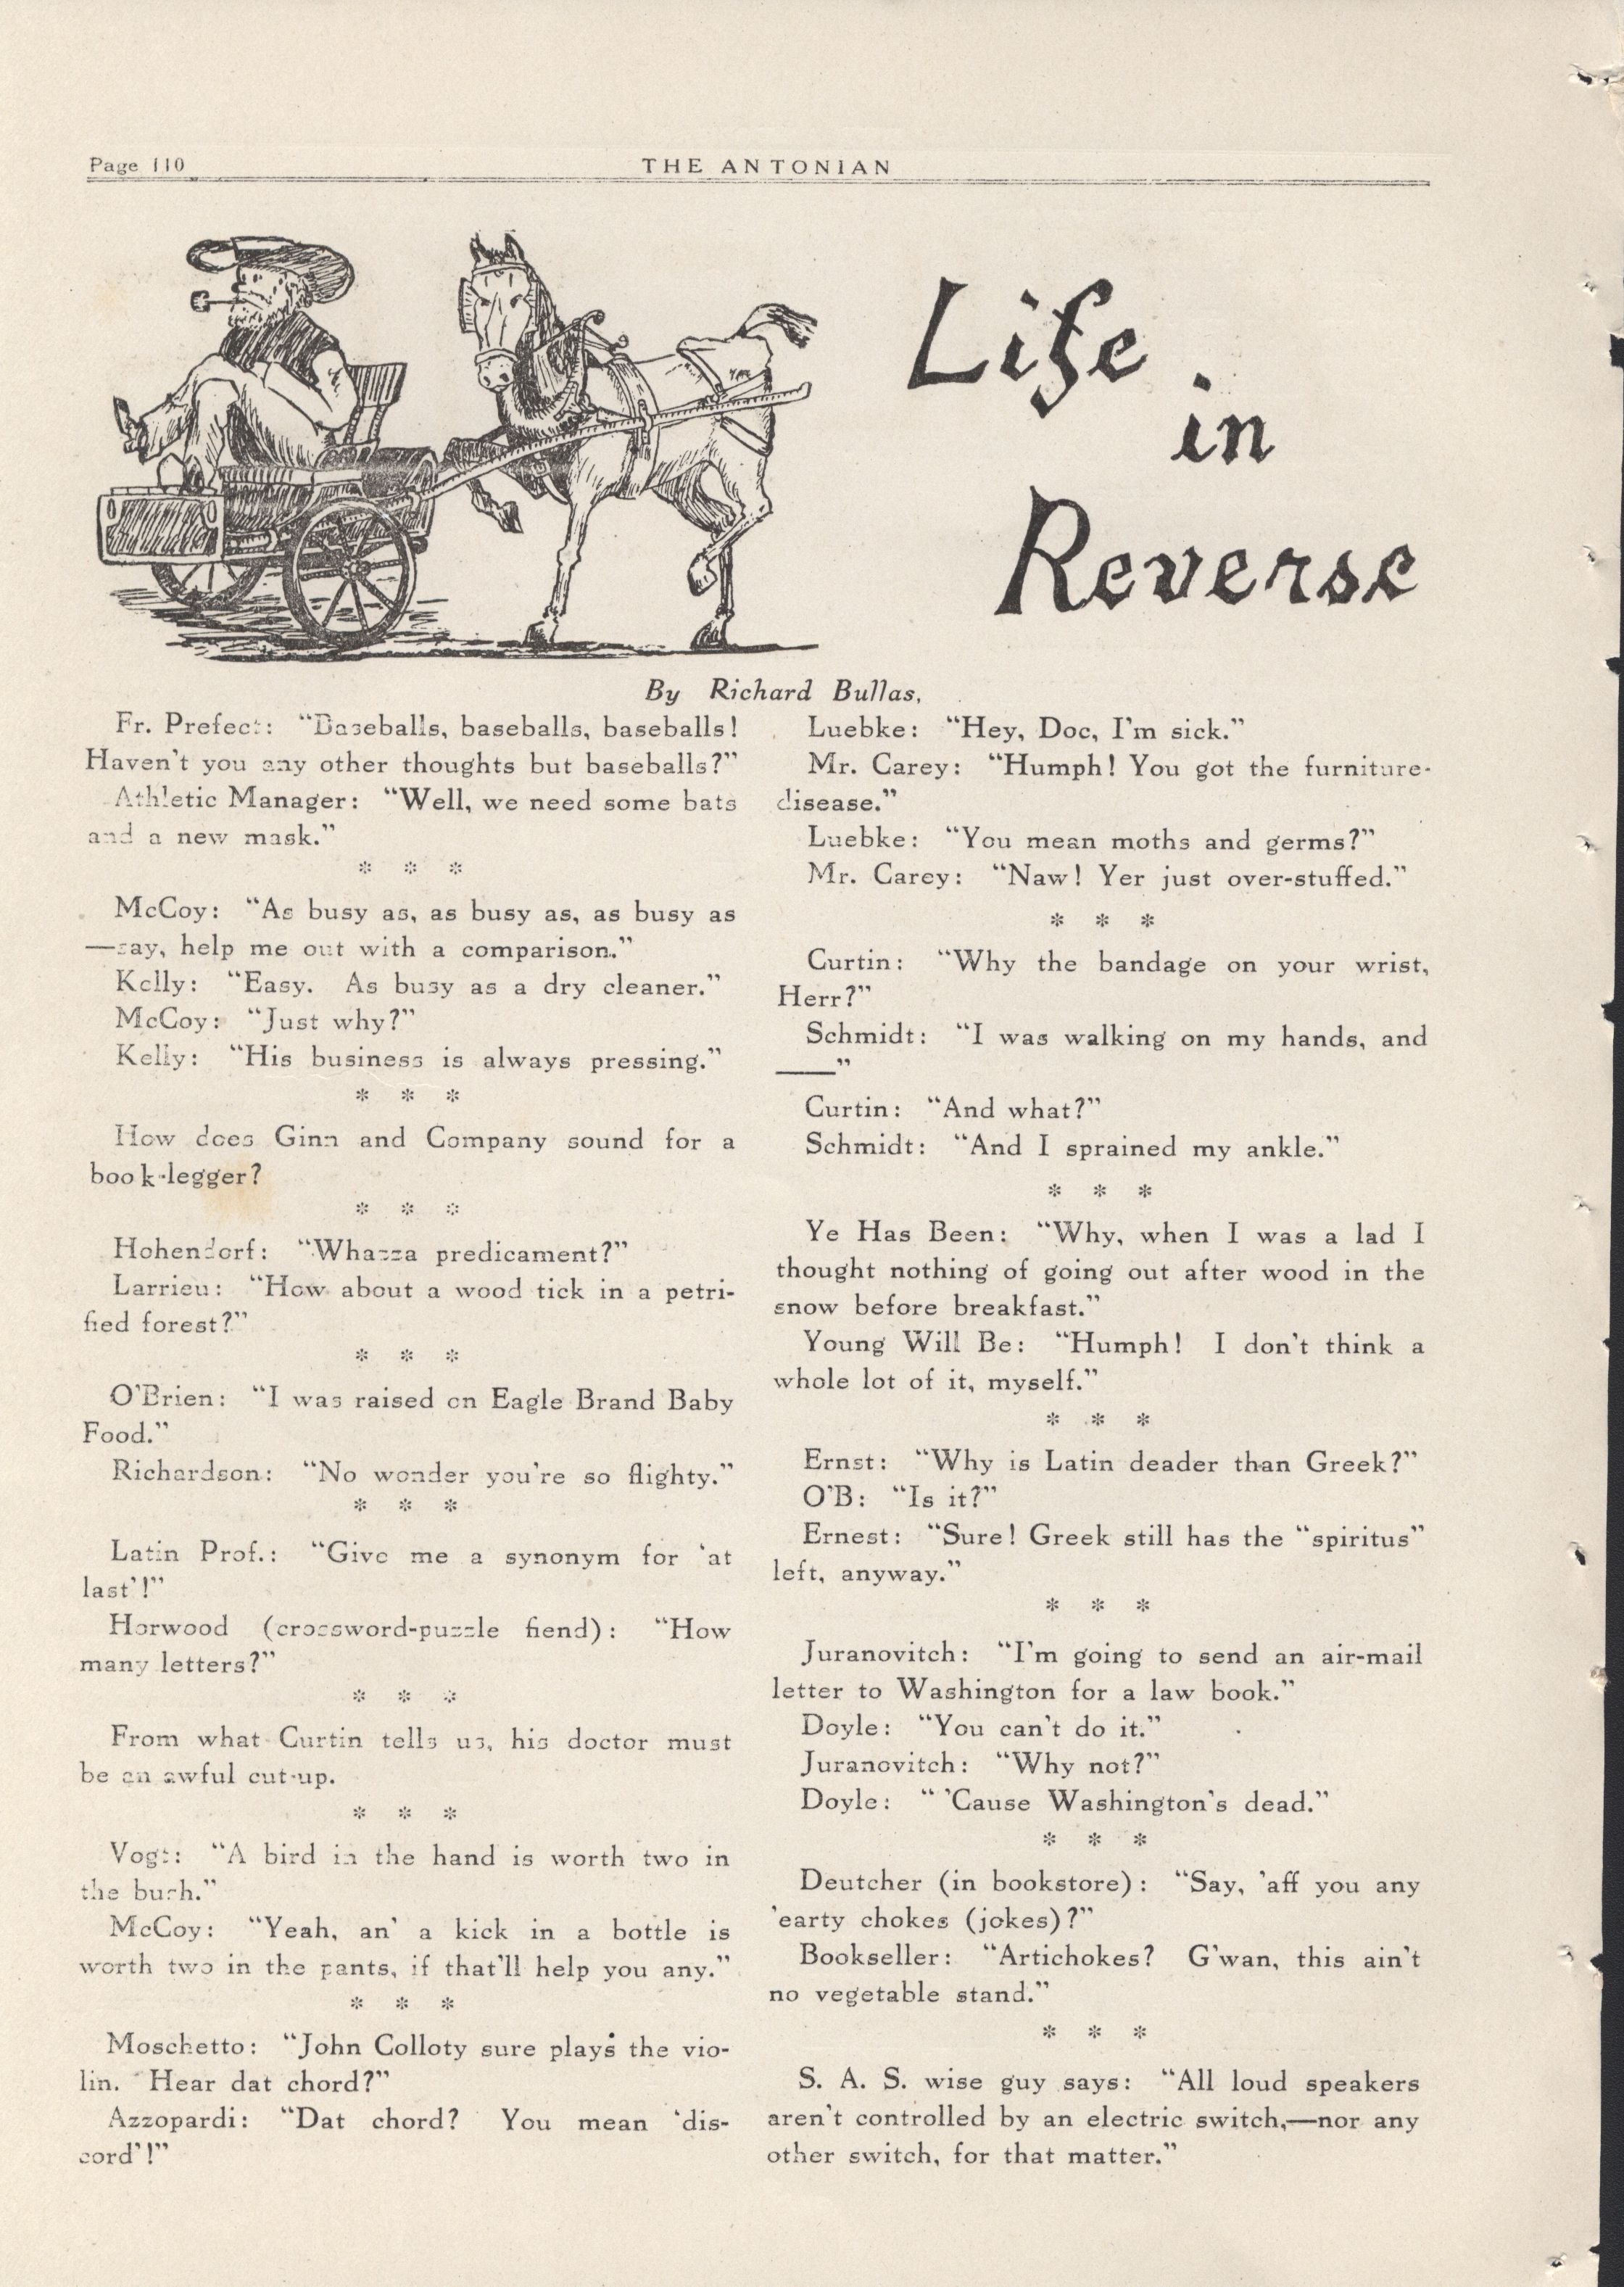 Page 110
THE ANTONIAN
Life
in
Reverse
By Richard Bullas,
Fr. Prefect: “Baseballs, baseballs, baseballs!
Haven't you any other thoughts but baseballs?”
Athletic Manager: “Well, we need some bats
and a new mask.”
* * *
McCoy: “As busy as, as busy as, as busy as
—say, help me out with a comparison.”
Kelly: “Easy. As busy as a dry cleaner.”
McCoy: “Just why?”
Kelly: “His business is always pressing.”
* * *
How does Ginn and Company sound for a
book-legger?
* * *
Hohendorf: “Whazza predicament?”
Larrieu: “How about a wood tick in a petri-
fied forest?”
* * *
O'Brien: “I was raised on Eagle Brand Baby
Food.”
Richardson: “No wonder you're so flighty.”
* * *
Latin Prof.: “Give me a synonym for ‘at
last’!”
Horwood (crossword-puzzle fiend): “How
many letters?”
* * *
From what Curtin tells us, his doctor must
be an awful cut-up.
* * *
Vogt: “A bird in the hand is worth two in
the bush.”
McCoy: “Yeah, an' a kick in a bottle is
worth two in the pants, if that'll help you any.”
* * *
Moschetto: “John Colloty sure plays the vio-
lin. Hear dat chord?”
Azzopardi: “Dat chord? You mean ‘dis-
cord’!”
Luebke: “Hey, Doc, I'm sick.”
Mr. Carey: “Humph! You got the furniture-
disease.”
Luebke: “You mean moths and germs?”
Mr. Carey: “Naw! Yer just over-stuffed.”
* * *
Curtin: “Why the bandage on your wrist,
Herr?”
Schmidt: “I was walking on my hands, and
——”
Curtin: “And what?”
Schmidt: “And I sprained my ankle.”
* * *
Ye Has Been: “Why, when I was a lad I
thought nothing of going out after wood in the
snow before breakfast.”
Young Will Be: “Humph! I don't think a
whole lot of it, myself.”
* * *
Ernst: “Why is Latin deader than Greek?”
O'B: “Is it?”
Ernest: “Sure! Greek still has the “spiritus”
left, anyway.”
* * *
Juranovitch: “I'm going to send an air-mail
letter to Washington for a law book.”
Doyle: “You can't do it.”
Juranovitch: “Why not?”
Doyle: “ 'Cause Washington's dead.”
* * *
Deutcher (in bookstore): “Say, 'aff you any
'earty chokes (jokes)?”
Bookseller: “Artichokes? G'wan, this ain't
no vegetable stand.”
* * *
S. A. S. wise guy says: “All loud speakers
aren't controlled by an electric switch,—nor any
other switch, for that matter.”